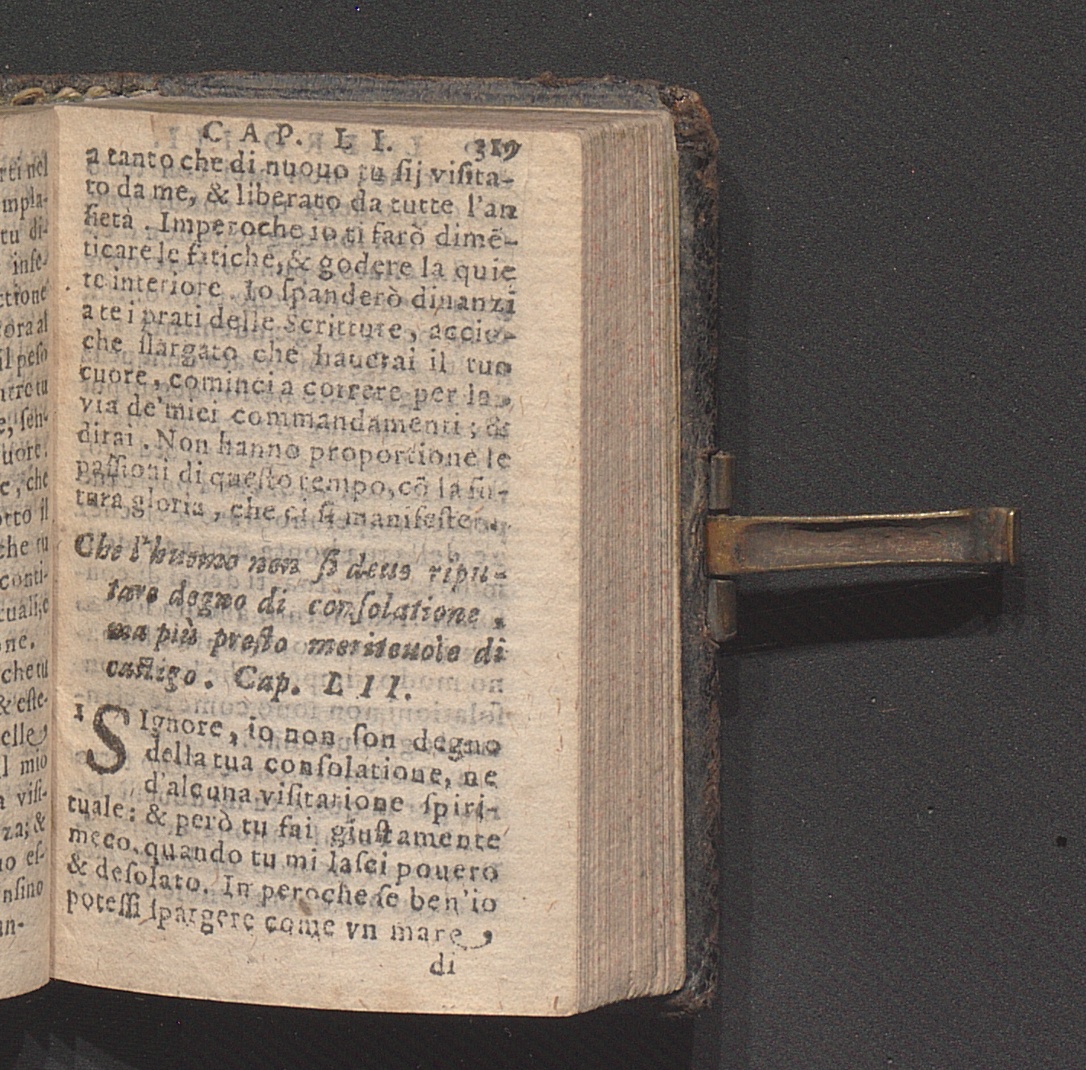 CAP. LI. 319
a tanto che di nuouo tu ſij viſita-
to da me, & liberato da tutte l'an
ſietà. Imperoche io ti farò dimẽ-
ticare le fatiche, & godere la quie
te interiore. Io ſpanderò dinanzi
a te i prati delle Scritture, accio-
che ſlargato che hauerai il tuo
cuore, cominci a correre per la
via de'miei commandamenti; &
dirai. Non hanno proportione le
paſſioni di queſto tempo, cõ la fu-
tura gloria, che ci ſi manifeſter.
Che l'huomo non ſi deue ripu-
tare degno di conſolatione,
ma più preſto meriteuole di
caſtigo. Cap. LII.
1 SIgnore, io non ſon degno
della tua conſolatione, ne
d'alcuna viſitatione ſpiri-
tuale: & però tu fai giuſtamente
meco, quando tu mi laſci pouero
& deſolato. Imperoche ſe ben'io
poteſſi ſpargere come vn mare,
di
rei nel
mpla-
tu di-
inſe-
ctione
ora al
il peſo
ntre tu
e, ſen-
uore:
e, che
otto il
che tu
conti-
tuali, e
one.
che tu
& eſte-
elle,
l mio
a viſi-
za; &
no eſ-
nſino
an-